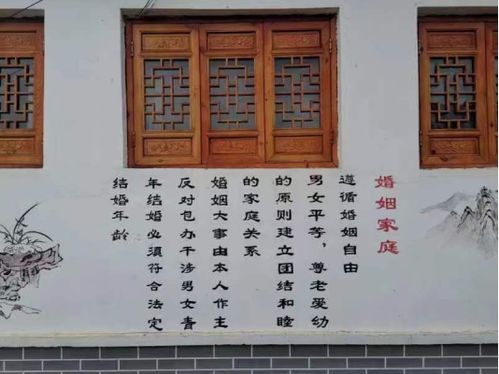 婚姻家庭
遵循婚姻自由
男女平等，尊老爱幼
的原则建立团结和睦
的家庭关系
婚姻大事由本人作主
反对包办干涉男女青
年结婚必须符合法定
结婚年龄